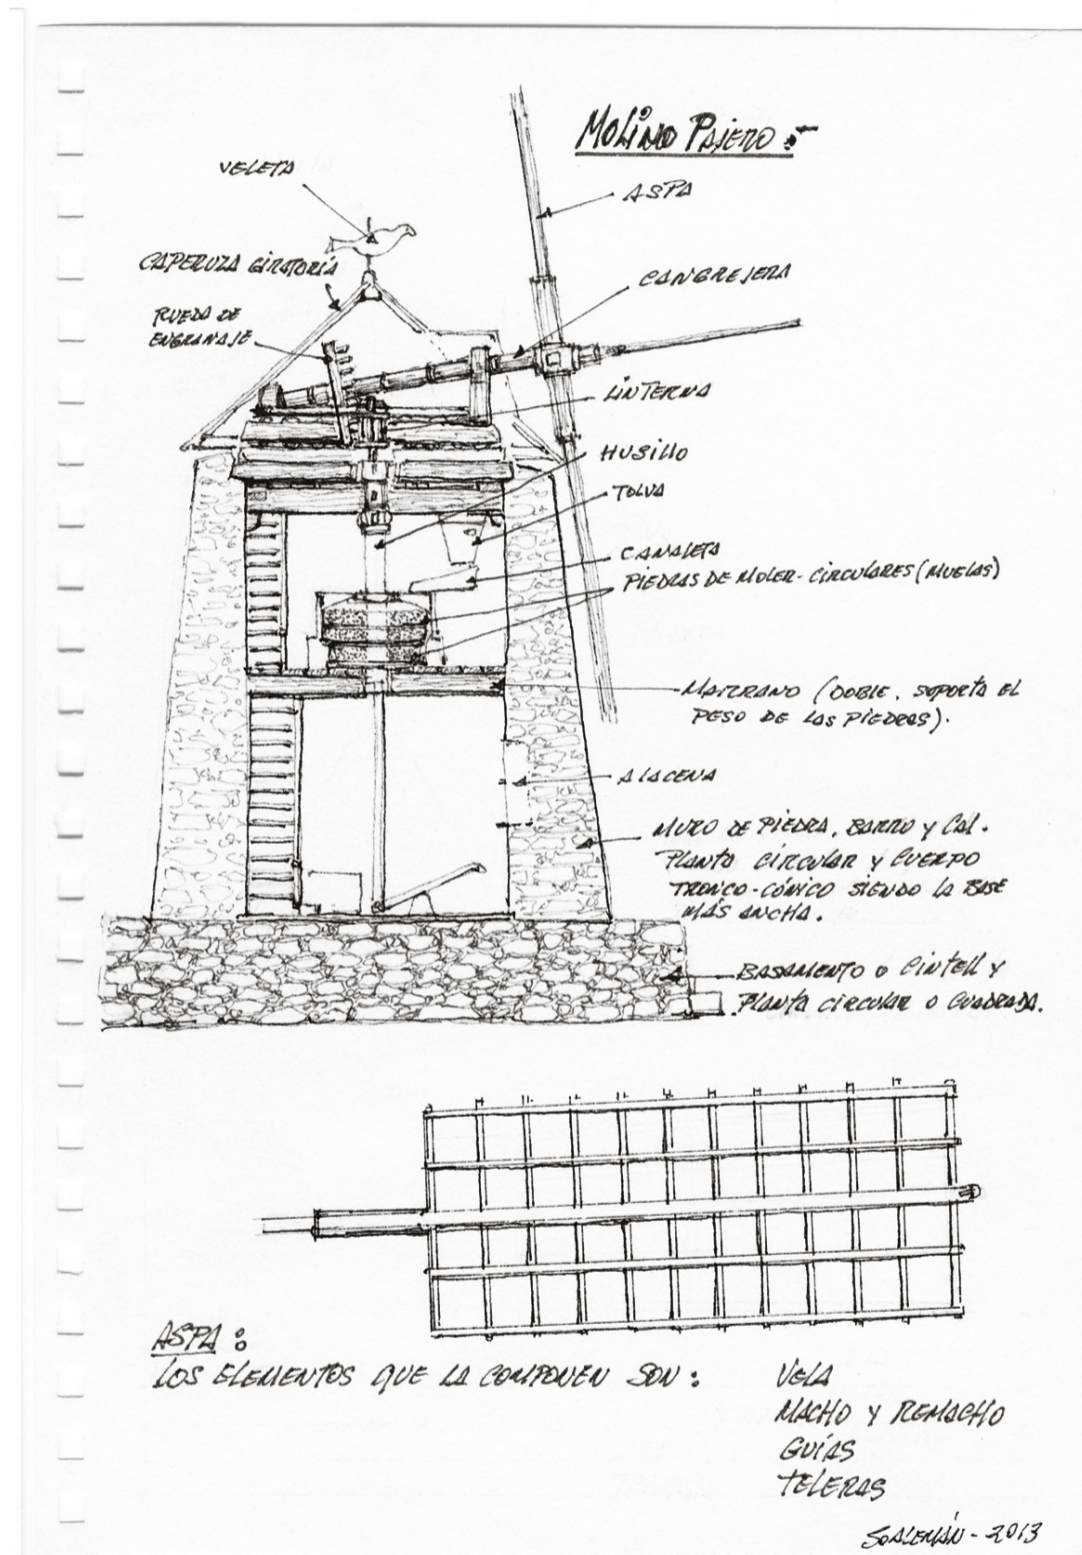 MOLINO PAJERO :-
VELETA
ASPA
CAPERUZA GIRATORIA
CANGREJERA
RUEDA DE
ENGRANAJE
LINTERNA
HUSILLO
TOLVA
CANALETA
PIEDRAS DE MOLER - CIRCULARES (MUELAS)
MARRANO (DOBLE. SOPORTA EL
PESO DE LAS PIEDRAS).
ALACENA
MURO DE PIEDRA, BARRO Y CAL.
PLANTA CIRCULAR Y CUERPO
TRONCO-CÓNICO SIENDO LA BASE
MÁS ANCHA.
BASAMENTO O CINTELL Y
PLANTA CIRCULAR O CUADRADA.
ASPA :
LOS ELEMENTOS QUE LA COMPONEN SON :
VELA
MACHO Y REMACHO
GUÍAS
TELERAS
SOALEMÁN - 2013